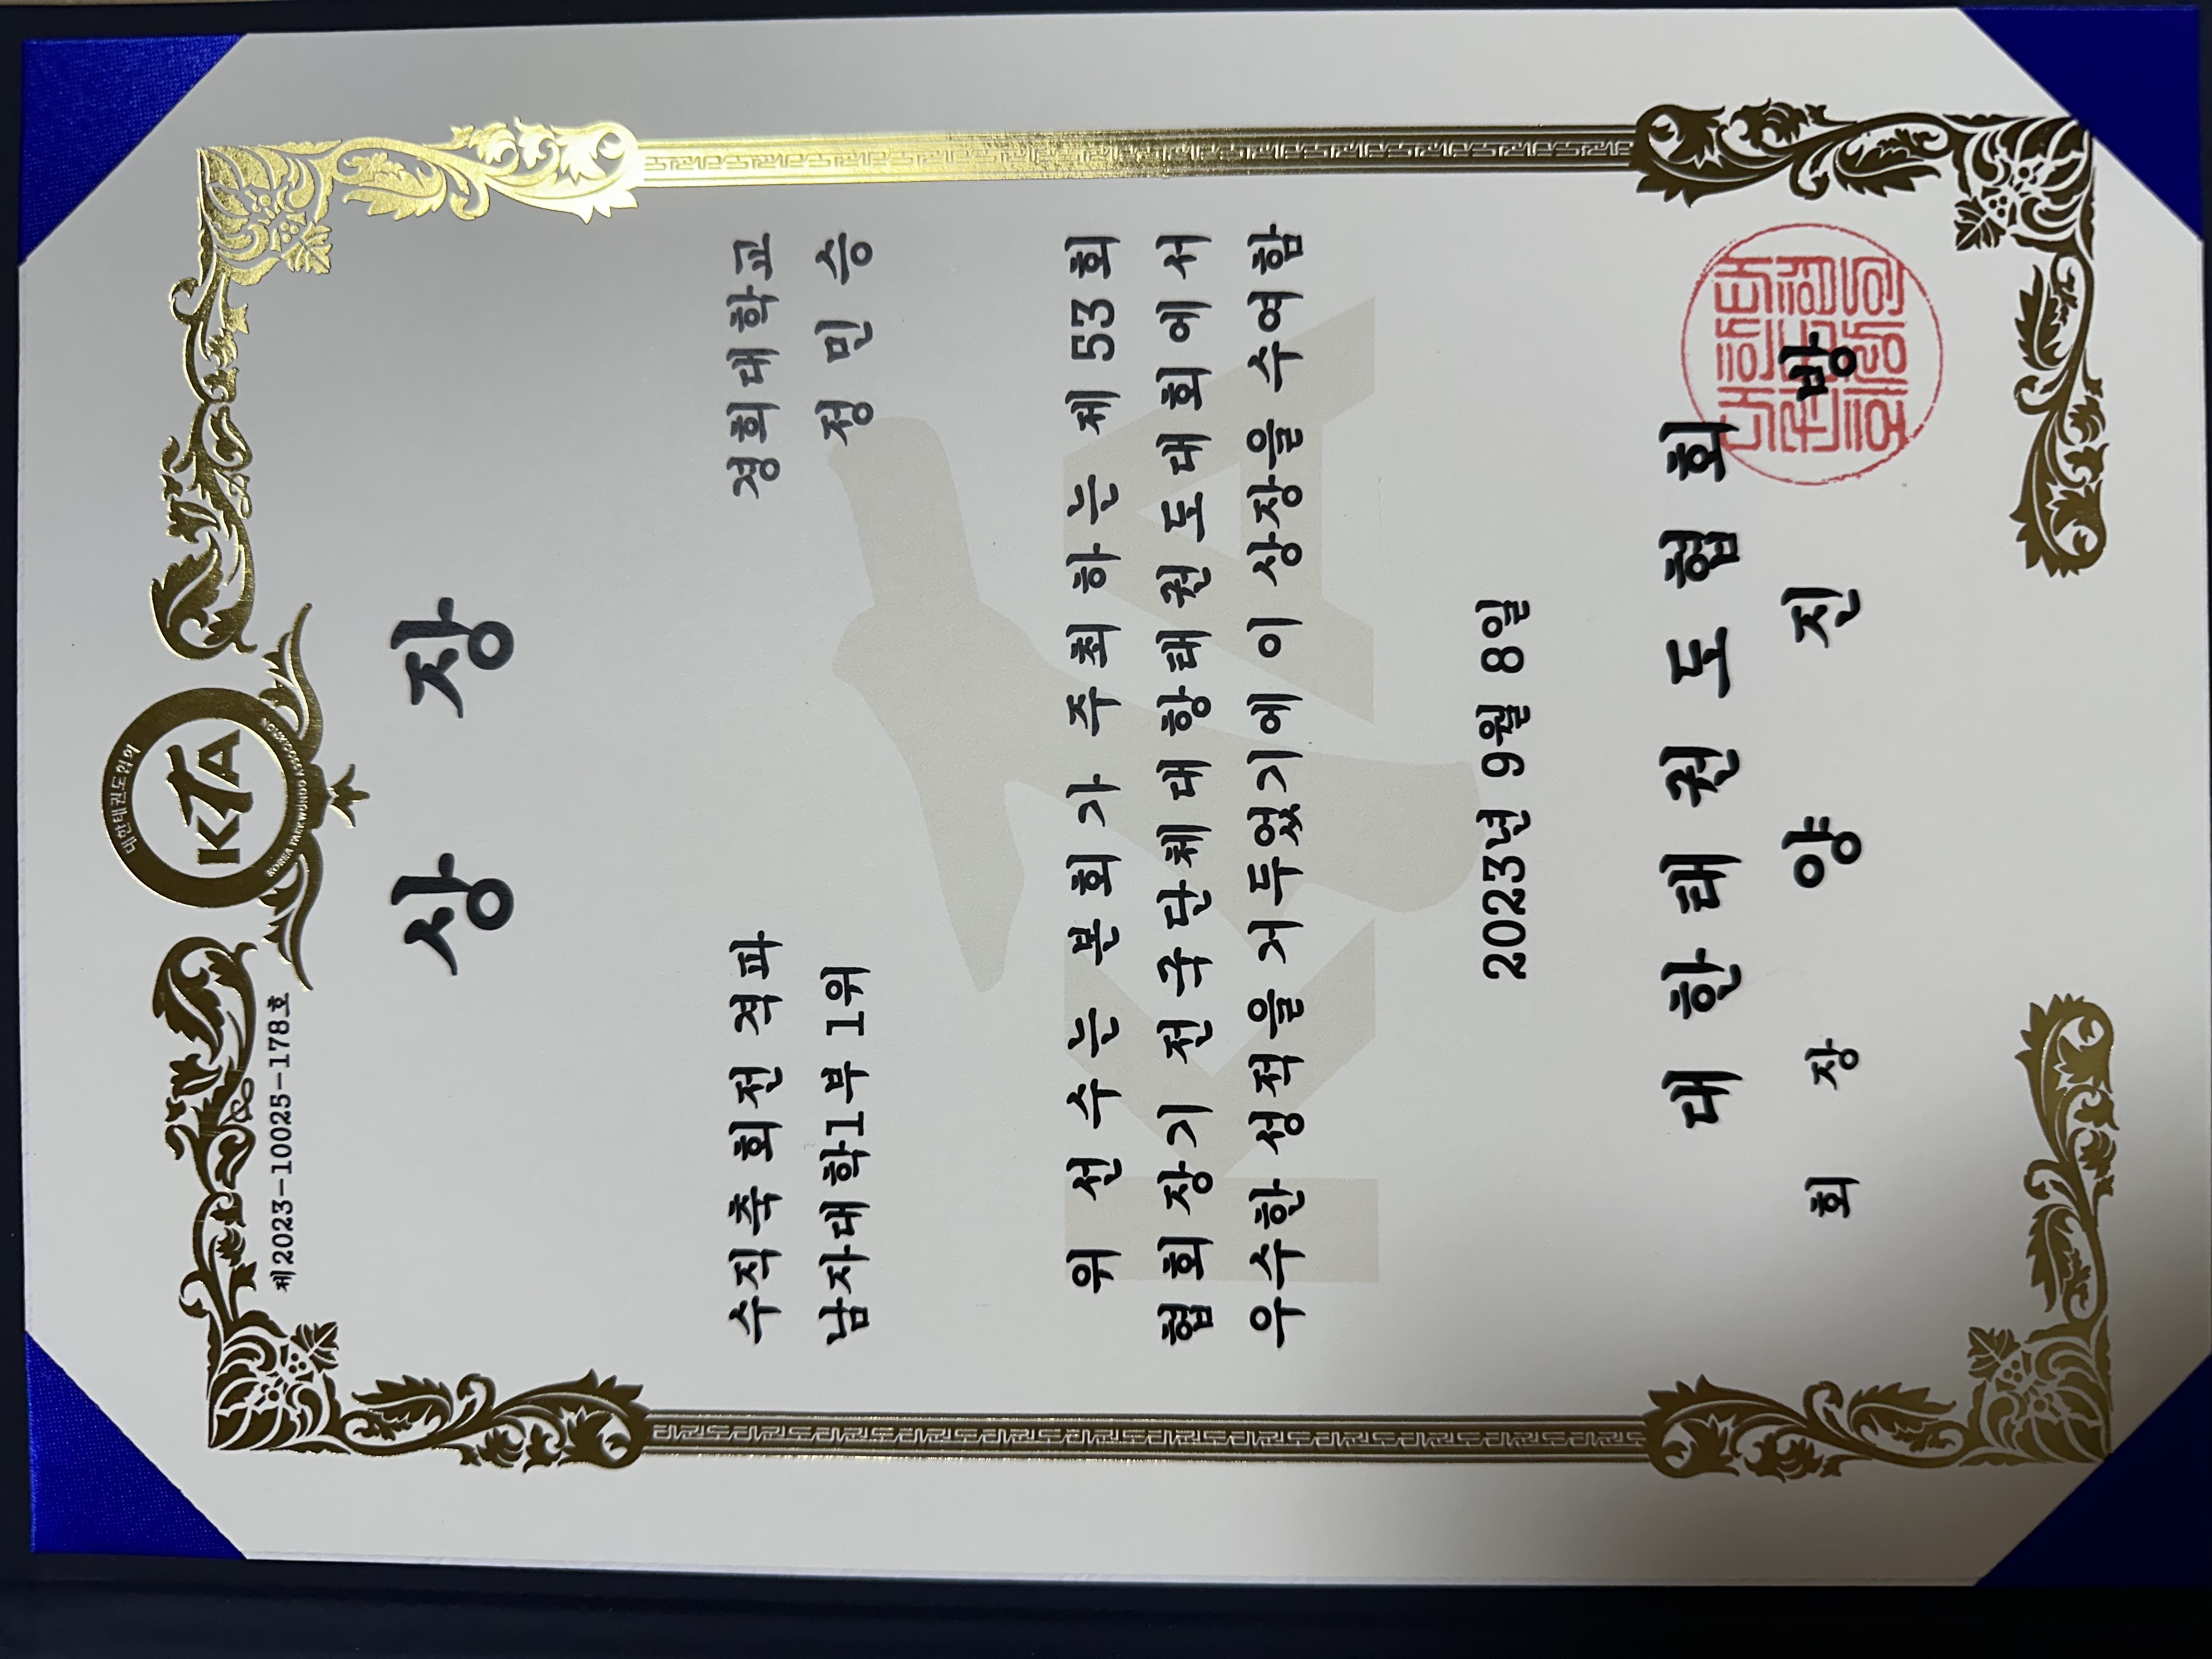 대한태권도협회
KTA
KOREA TAEKWONDO ASSOCIATION
제2023-10025-178호
상 장
경희대학교
정 민 승
수직축 회전 격파
남자대학1부 1위
위 선수는 본회가 주최하는 제53회
협회장기 전국단체대항태권도대회에서
우수한 성적을 거두었기에 이 상장을 수여함
2023년 9월 8일
대 한 태 권 도 협 회
회 장 양 진 방